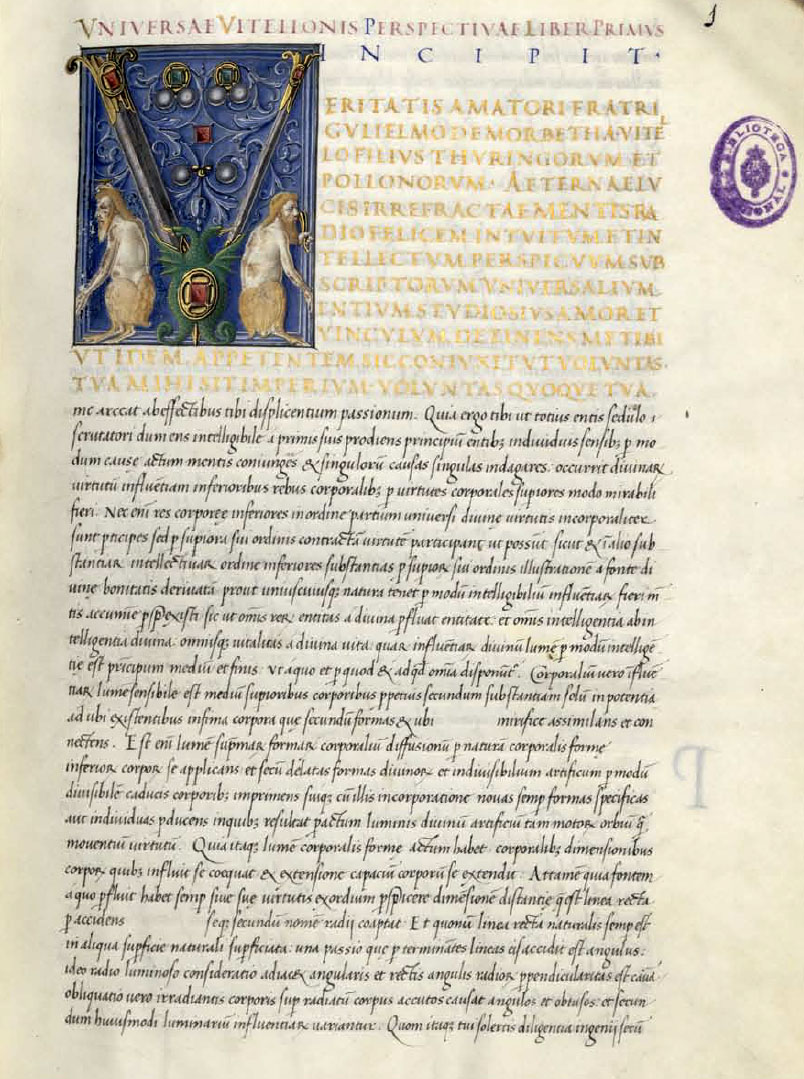 VNIVERSAE VITELLIONIS PERSPECTIVAE LIBER PRIMVS
INCIPIT·
1
VERITATIS AMATORI FRATRI
GVLIELMO DE MORBETHA VITEL
LO FILIVS THVRINGORVM ET
POLLONORVM· AETERNAE LV
CIS IRREFRACTAE MENTIS RA
DIO FELICEM INTVITVM ET IN
TELLECTVM PERSPICVVM SVB
SCRIPTORVM VNIVERSALIVM
ENTIVM STVDIOSIVS AMOR ET
VINCVLVM DETINENS ME TIBI
VT IDEM APPETENTEM SIC CONIVNXIT VT VOLVNTAS·
TVA MIHI SIT IMPERIVM· VOLVNTAS QVOQVE TVA
BIBLIOTECA NACIONAL
me arceat ab effectibus tibi displicentium passionum. Quia ergo tibi ut totius entis sedulo i
scrutatori dum ens intelligibile a primis suis prodiens principiis entibꝫ individuis sensibꝫ p mo
dum cause actum mentis coniunges & singuloꝝ causas singulas indagares· occurrit divinaꝝ
virtutū influentiam inferioribus rebus corporalibꝫ p virtutes corporales supiores modo mirabili
fieri. Nec eni res corporeę inferiores in ordine partium universi divinę virtutis incorporaliter
sunt pticipes sed p supiora sui ordinis contractā virtutē participant ut possūt sicut & i alio sub
stantiaꝝ intellectivaꝝ ordine inferiores substantias p supioꝝ sui ordinis illustratione a fonte di
vine bonitatis derivata prout uniuscuiusqꝫ natura tenet p modū intelligibiliū influentiaꝝ fieri
sic ut omis reꝝ entitas a divina pfluat entitate· et omis intelligentia ab in
telligentia divina· omnisqꝫ vitalitas a divina vita· quaꝝ influentiaꝝ divinū lumē p modū intellige
tię est pricipum mediū et finis· ut a quo et p quod & ad qd omia disponunt. Corporaliū vero iflue
tiaꝝ lumē sensibile est mediū supioribus corporibus ppetuis secundum substantiam solū in potentia
ad ubi existentibus infima corpora que secundū formas & ubi mirifice assimilans et con
nectens. Est eni lumē supmaꝝ formaꝝ corporaliū diffusionū p naturā corporalis formę
inferioꝝ corpoꝝ se applicans et secū delatas formas divinoꝝ et indivisibilium artificum p modū
divisibilē caducis corporibꝫ imprimens suiqꝫ cū illis incorporatione novas semp formas specificas
aut individuas pducens in quibꝫ resultat p actum luminis divinū artificiū tam motoꝝ orbiū q̄
moventiū virtutū. Quia itaqꝫ lumē corporalis formę actum habet corporalibꝫ dimensionibus
corpoꝝ quibꝫ influit se coequat & extensione capaciū corporū se extendit. Attamē quia fontem
a quo pfluit habet semp suę virtutis exordium pspicere dimēsione distantię q̄ est linea recta
p accidens seqꝫ secundū nomē radii coaptat· Et quoniā linea recta naturalis semp est
in aliqua supficie naturali· supficiata· una passio que p terminātes lineas eis accidit est angulus·
ideo radio luminoso consideratio adiacet angularis et rectis angulis radioꝝ ppendicularitas est causa·
obliquatio vero irradiantis corporis sup radiatū corpus accutos causat angulos et obtusos et secun
dum huiusmodi luminariū influentiaꝝ variantur. Quom itaqꝫ tui solertis diligentia ingenij secū